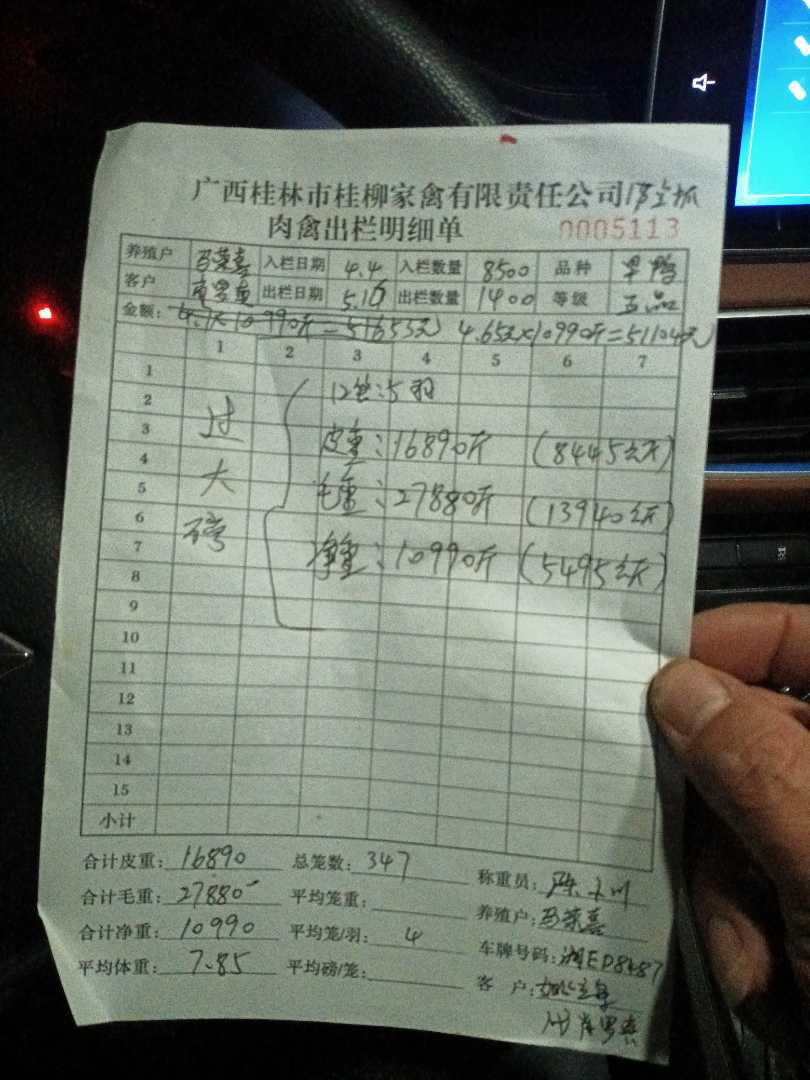 广西桂林市桂柳家禽有限责任公司
肉禽出栏明细单 0005113
养殖户 入栏日期 4.4 入栏数量 8500 品种
客户 出栏日期 5.16 出栏数量 1400 等级
金额: 4.7×10990斤=51653元 4.65元×10990斤=51104元
1 2 3 4 5 6 7
1
2 12笼:5羽
3 过 皮重:16890斤 (8445公斤)
4
5 大 毛重:27880斤 (13940公斤)
6
7 磅 净重:10990斤 (5495公斤)
8
9
10
11
12
13
14
15
小计
合计皮重: 16890 总笼数: 347 称重员:
合计毛重: 27880 平均笼重: 养殖户:
合计净重: 10990 平均笼/羽: 4 车牌号码: 湘EP8487
平均体重: 7.85 平均磅/笼: 客 户: